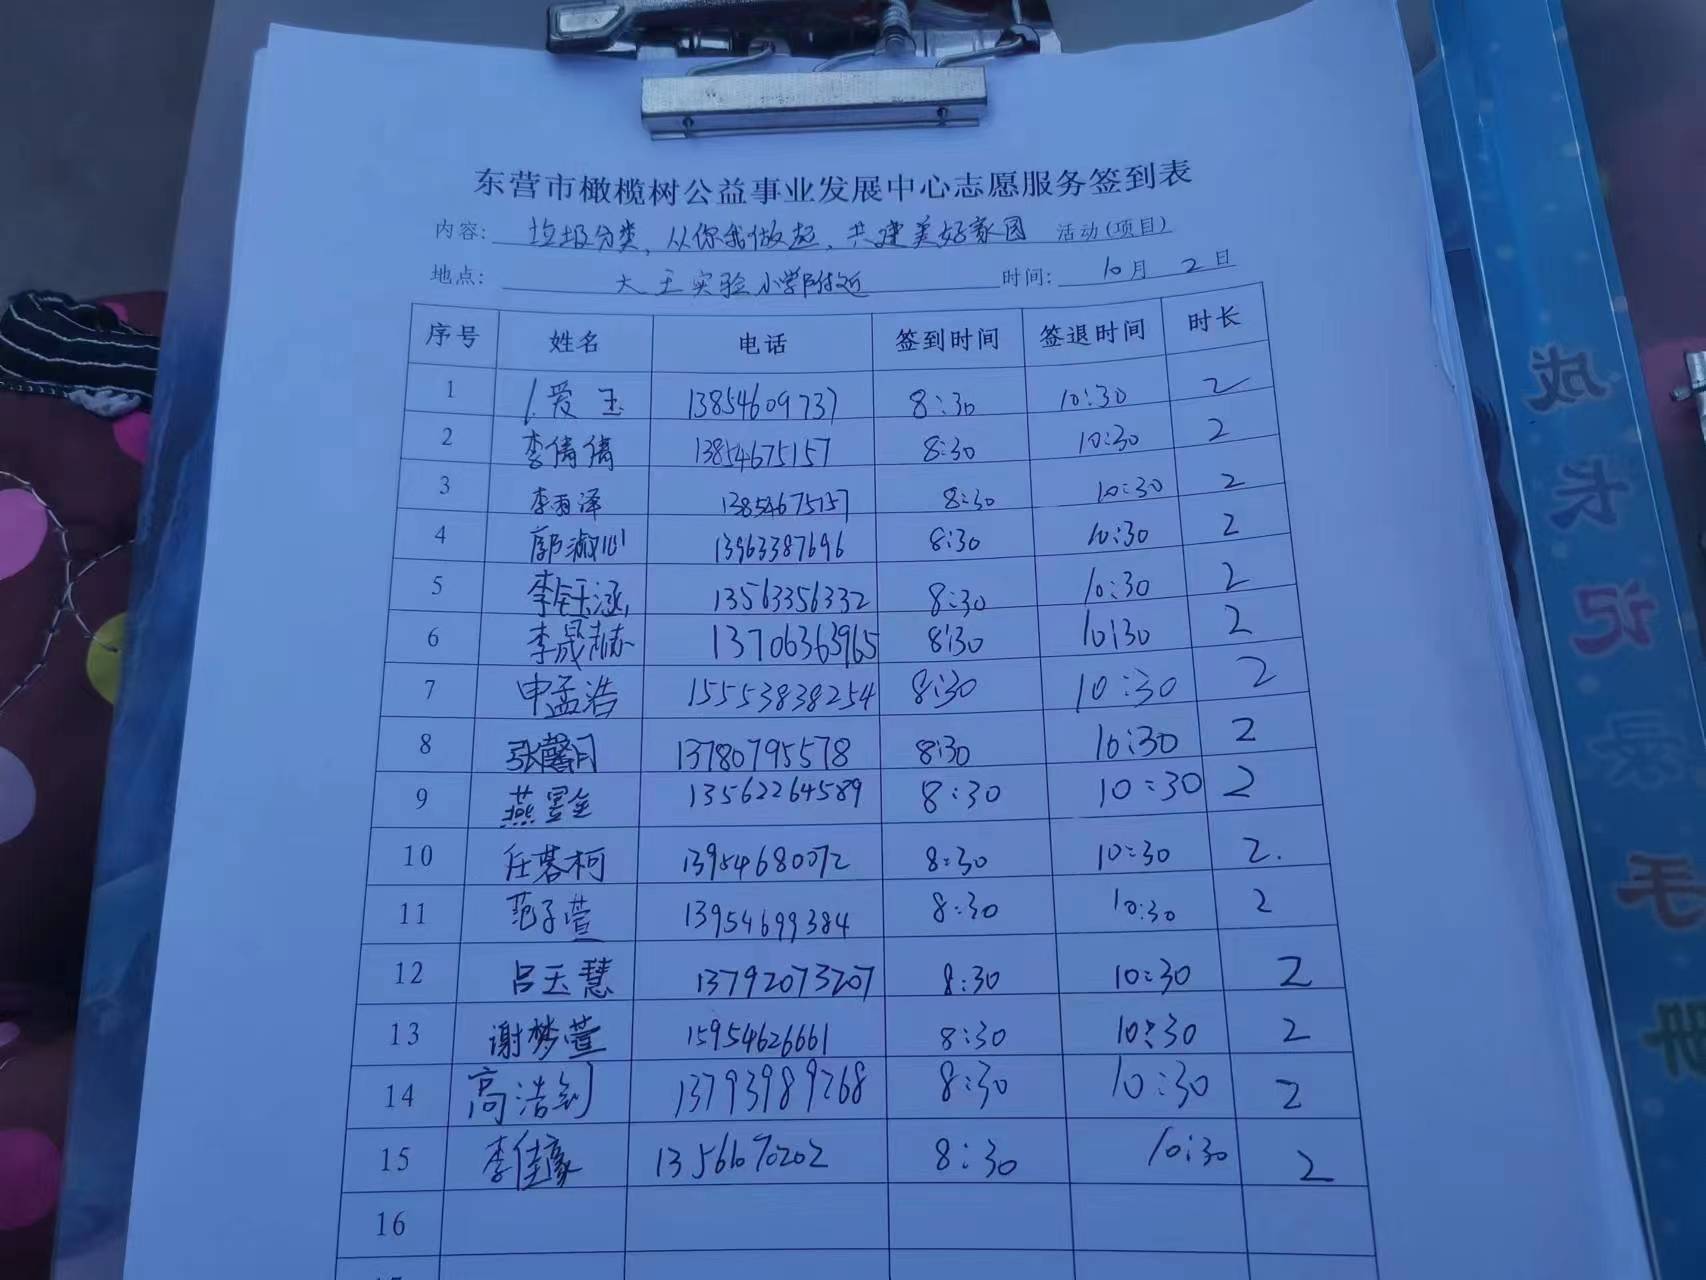 东营市橄榄树公益事业发展中心志愿服务签到表
内容: 垃圾分类，从你我做起，共建美好家园 活动(项目)
地点: 大王实验小学附近 时间: 10月 2日
序号 姓名 电话 签到时间 签退时间 时长
1 爱玉 13854609737 8:30 10:30 2
2 李倩倩 13854675157 8:30 10:30 2
3 李雨泽 13854675157 8:30 10:30 2
4 郭淑 13963387696 8:30 10:30 2
5 李钰涵 13563356332 8:30 10:30 2
6 李晟 13706363965 8:30 10:30 2
7 申孟浩 15553838254 8:30 10:30 2
8 张馨月 13780795578 8:30 10:30 2
9 燕 13562264589 8:30 10:30 2
10 任柯 13954680072 8:30 10:30 2.
11 范子萱 13954699384 8:30 10:30 2
12 吕玉慧 13792073207 8:30 10:30 2
13 谢梦萱 15954626661 8:30 10:30 2
14 高浩 13793989268 8:30 10:30 2
15 李佳豪 8:30 10:30 2
16
成长记录手册